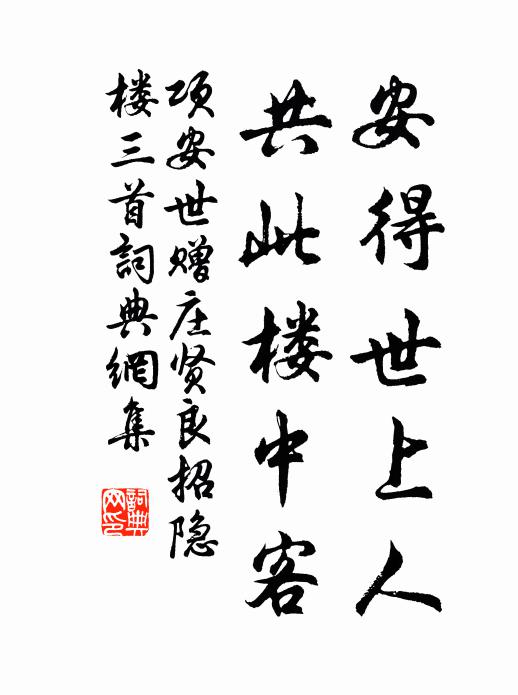 安得世上人
共此楼中客
项安世赠庄贤良招隐
楼三首詞典網集
詞典网印